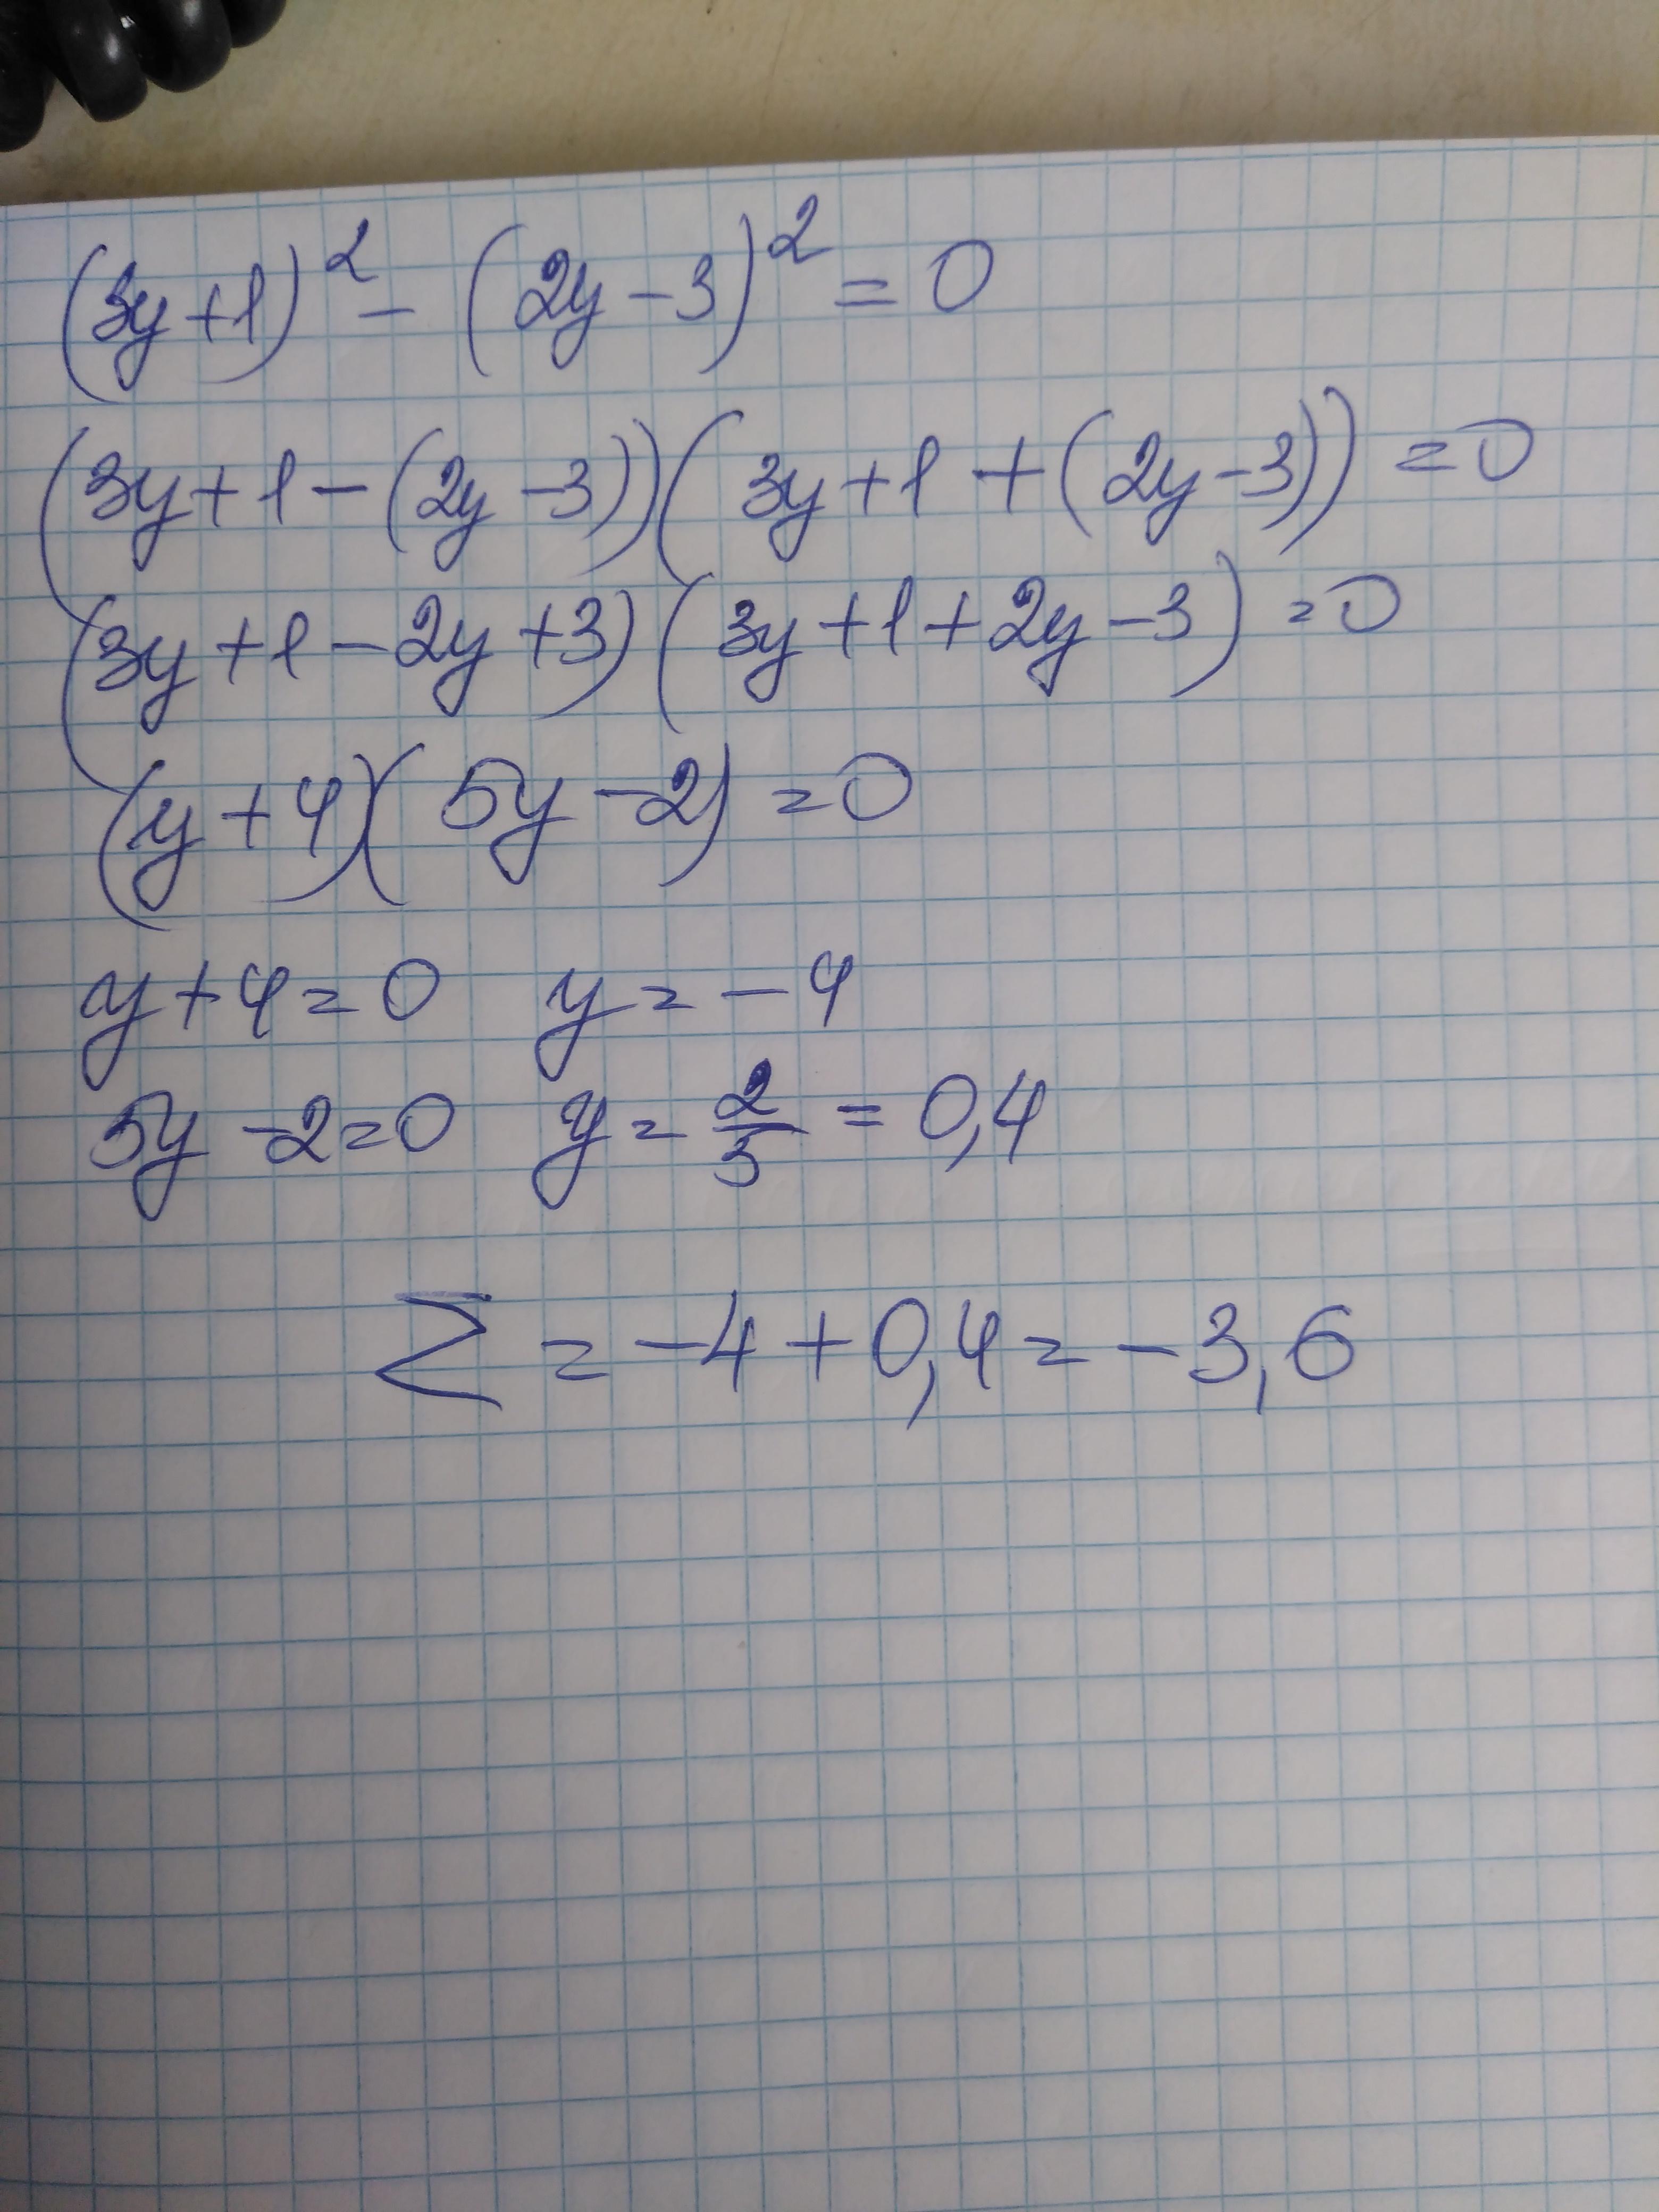 (3y+1)² - (2y-3)² = 0
(3y+1-(2y-3))(3y+1+(2y-3)) = 0
(3y+1-2y+3)(3y+1+2y-3) = 0
(y+4)(5y-2) = 0
y+4=0 y=-4
5y-2=0 y=2/5=0,4
∑ = -4+0,4=-3,6